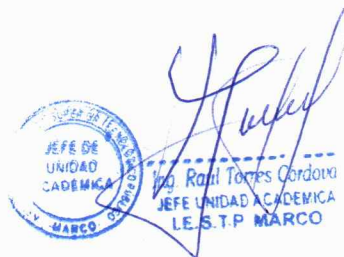 JEFE DE
UNIDAD
CADEMICA
MARCO
Ing. Raul Torres Cordova
JEFE UNIDAD ACADEMICA
I.E.S.T.P MARCO